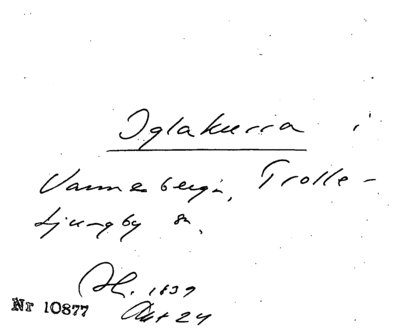 Iglakurra i
Vannebergа, Trolle-
Ljungby sn.
Sk. 1839
Akt 24
Nr 10877